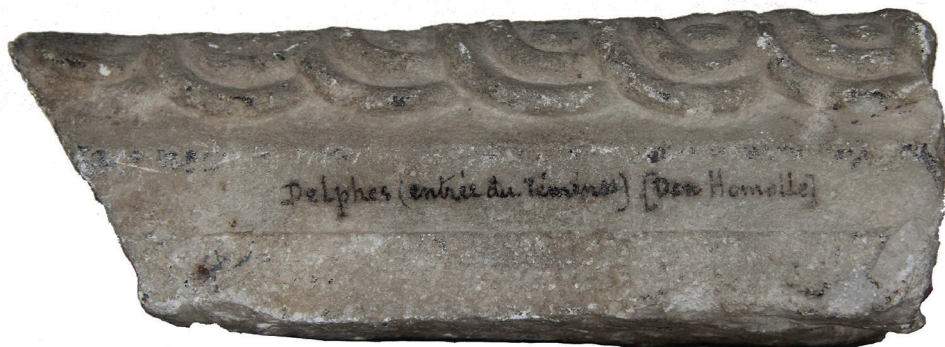 Delphes (entrée du Téménos) [Don Homolle]